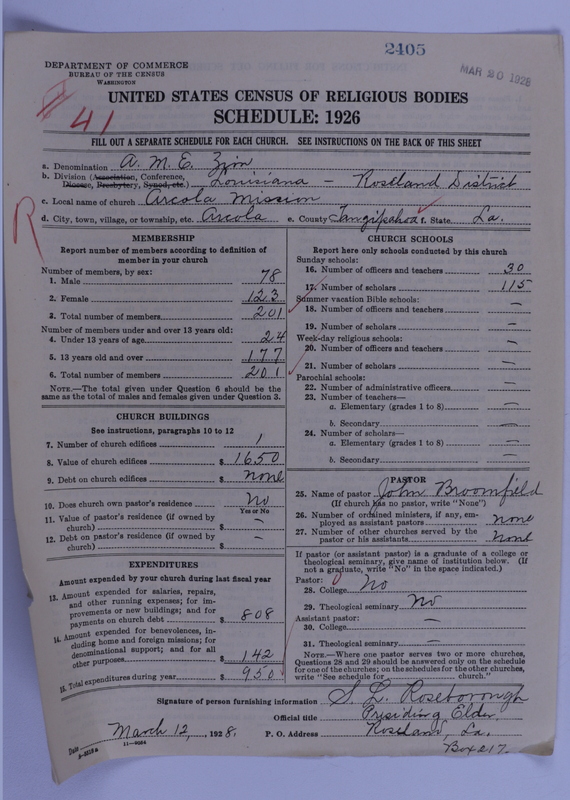 2405
MAR 20 1928
DEPARTMENT OF COMMERCE
BUREAU OF THE CENSUS
WASHINGTON
UNITED STATES CENSUS OF RELIGIOUS BODIES
SCHEDULE: 1926
41
FILL OUT A SEPARATE SCHEDULE FOR EACH CHURCH. SEE INSTRUCTIONS ON THE BACK OF THIS SHEET
a. Denomination A. M. E. Zion
b. Division (Association, Conference, Diocese, Presbytery, Synod, etc.) Louisiana - Roseland District
c. Local name of church Arcola Mission
d. City, town, village, or township, etc. Arcola e. County Tangipahoa f. State La.
R
MEMBERSHIP
Report number of members according to definition of
member in your church
Number of members, by sex:
1. Male 78
2. Female 123
3. Total number of members 201
Number of members under and over 13 years old:
4. Under 13 years of age 24
5. 13 years old and over 177
6. Total number of members 201
NOTE.—The total given under Question 6 should be
same as the total of males and females given under Question 3.
CHURCH BUILDINGS
See instructions, paragraphs 10 to 12
7. Number of church edifices 1
8. Value of church edifices $ 1650
9. Debt on church edifices $ none
10. Does church own pastor's residence No
Yes or No
11. Value of pastor's residence (if owned by
church) $ —
12. Debt on pastor's residence (if owned by
church) $ —
EXPENDITURES
Amount expended by church during last fiscal year
13. Amount expended for salaries, repairs,
and other running expenses; for im-
provements or new buildings; and for
payments on church debt $ 808
14. Amount expended for benevolences, in-
cluding home and foreign missions; for
denominational support; and for all
other purposes $ 142
15. Total expenditures during year $ 950
CHURCH SCHOOLS
Report here only schools conducted by this church
Sunday schools:
16. Number of officers and teachers 30
17. Number of scholars 115
Summer vacation Bible schools:
18. Number of officers and teachers —
19. Number of scholars —
Week-day religious schools:
20. Number of officers and teachers —
21. Number of scholars —
Parochial schools:
22. Number of administrative officers —
23. Number of teachers—
a. Elementary (grades 1 to 8) —
b. Secondary —
24. Number of scholars—
a. Elementary (grades 1 to 8) —
b. Secondary —
PASTOR
25. Name of pastor John Broomfield
(If church has no pastor, write "None")
26. Number of ordained ministers, if any, em-
ployed as assistant pastors none
27. Number of other churches served by the
pastor or his assistants none
If pastor (or assistant pastor) is a graduate of a college or
theological seminary, give name of institution below. (If
not a graduate, write "No" in the space indicated.)
Pastor:
28. College No
29. Theological seminary No
Assistant pastor:
30. College —
31. Theological seminary —
NOTE.—Where one pastor serves two or more churches,
Questions 28 and 29 should be answered only on the schedule
for one of the churches; on the schedules for the other churches,
write "See schedule for church."
Signature of person furnishing information S. L. Roseborough
Official title Presiding Elder
Date March 12, 1928. P. O. Address Roseland, La.
Box 217.